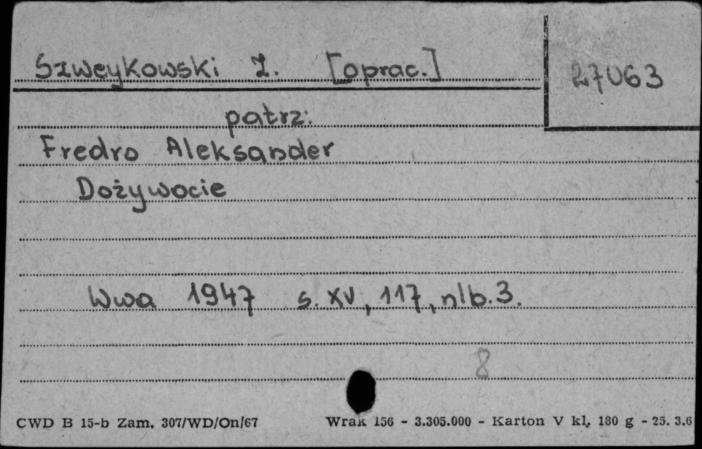 Szweykowski Z. [oprac.]
27063
patrz:
Fredro Aleksander
Dożywocie
Wwa 1947 s. XV, 117, nlb. 3.
8
CWD B 15-b Zam. 307/WD/On/67 Wrak 156 - 3.305.000 - Karton V kl. 180 g - 25. 3.6